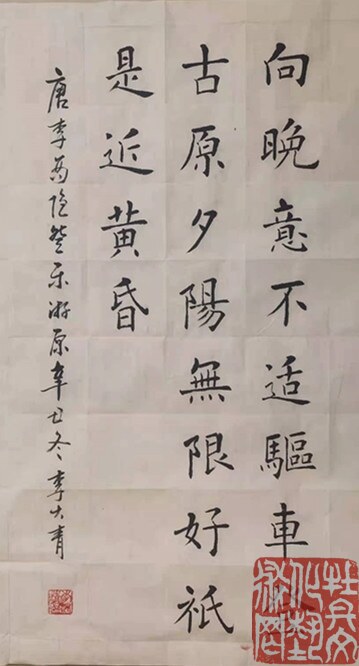 向晚意不适驅車
古原夕陽無限好祇
是近黄昏
唐李商隐登乐游原辛丑冬李大青